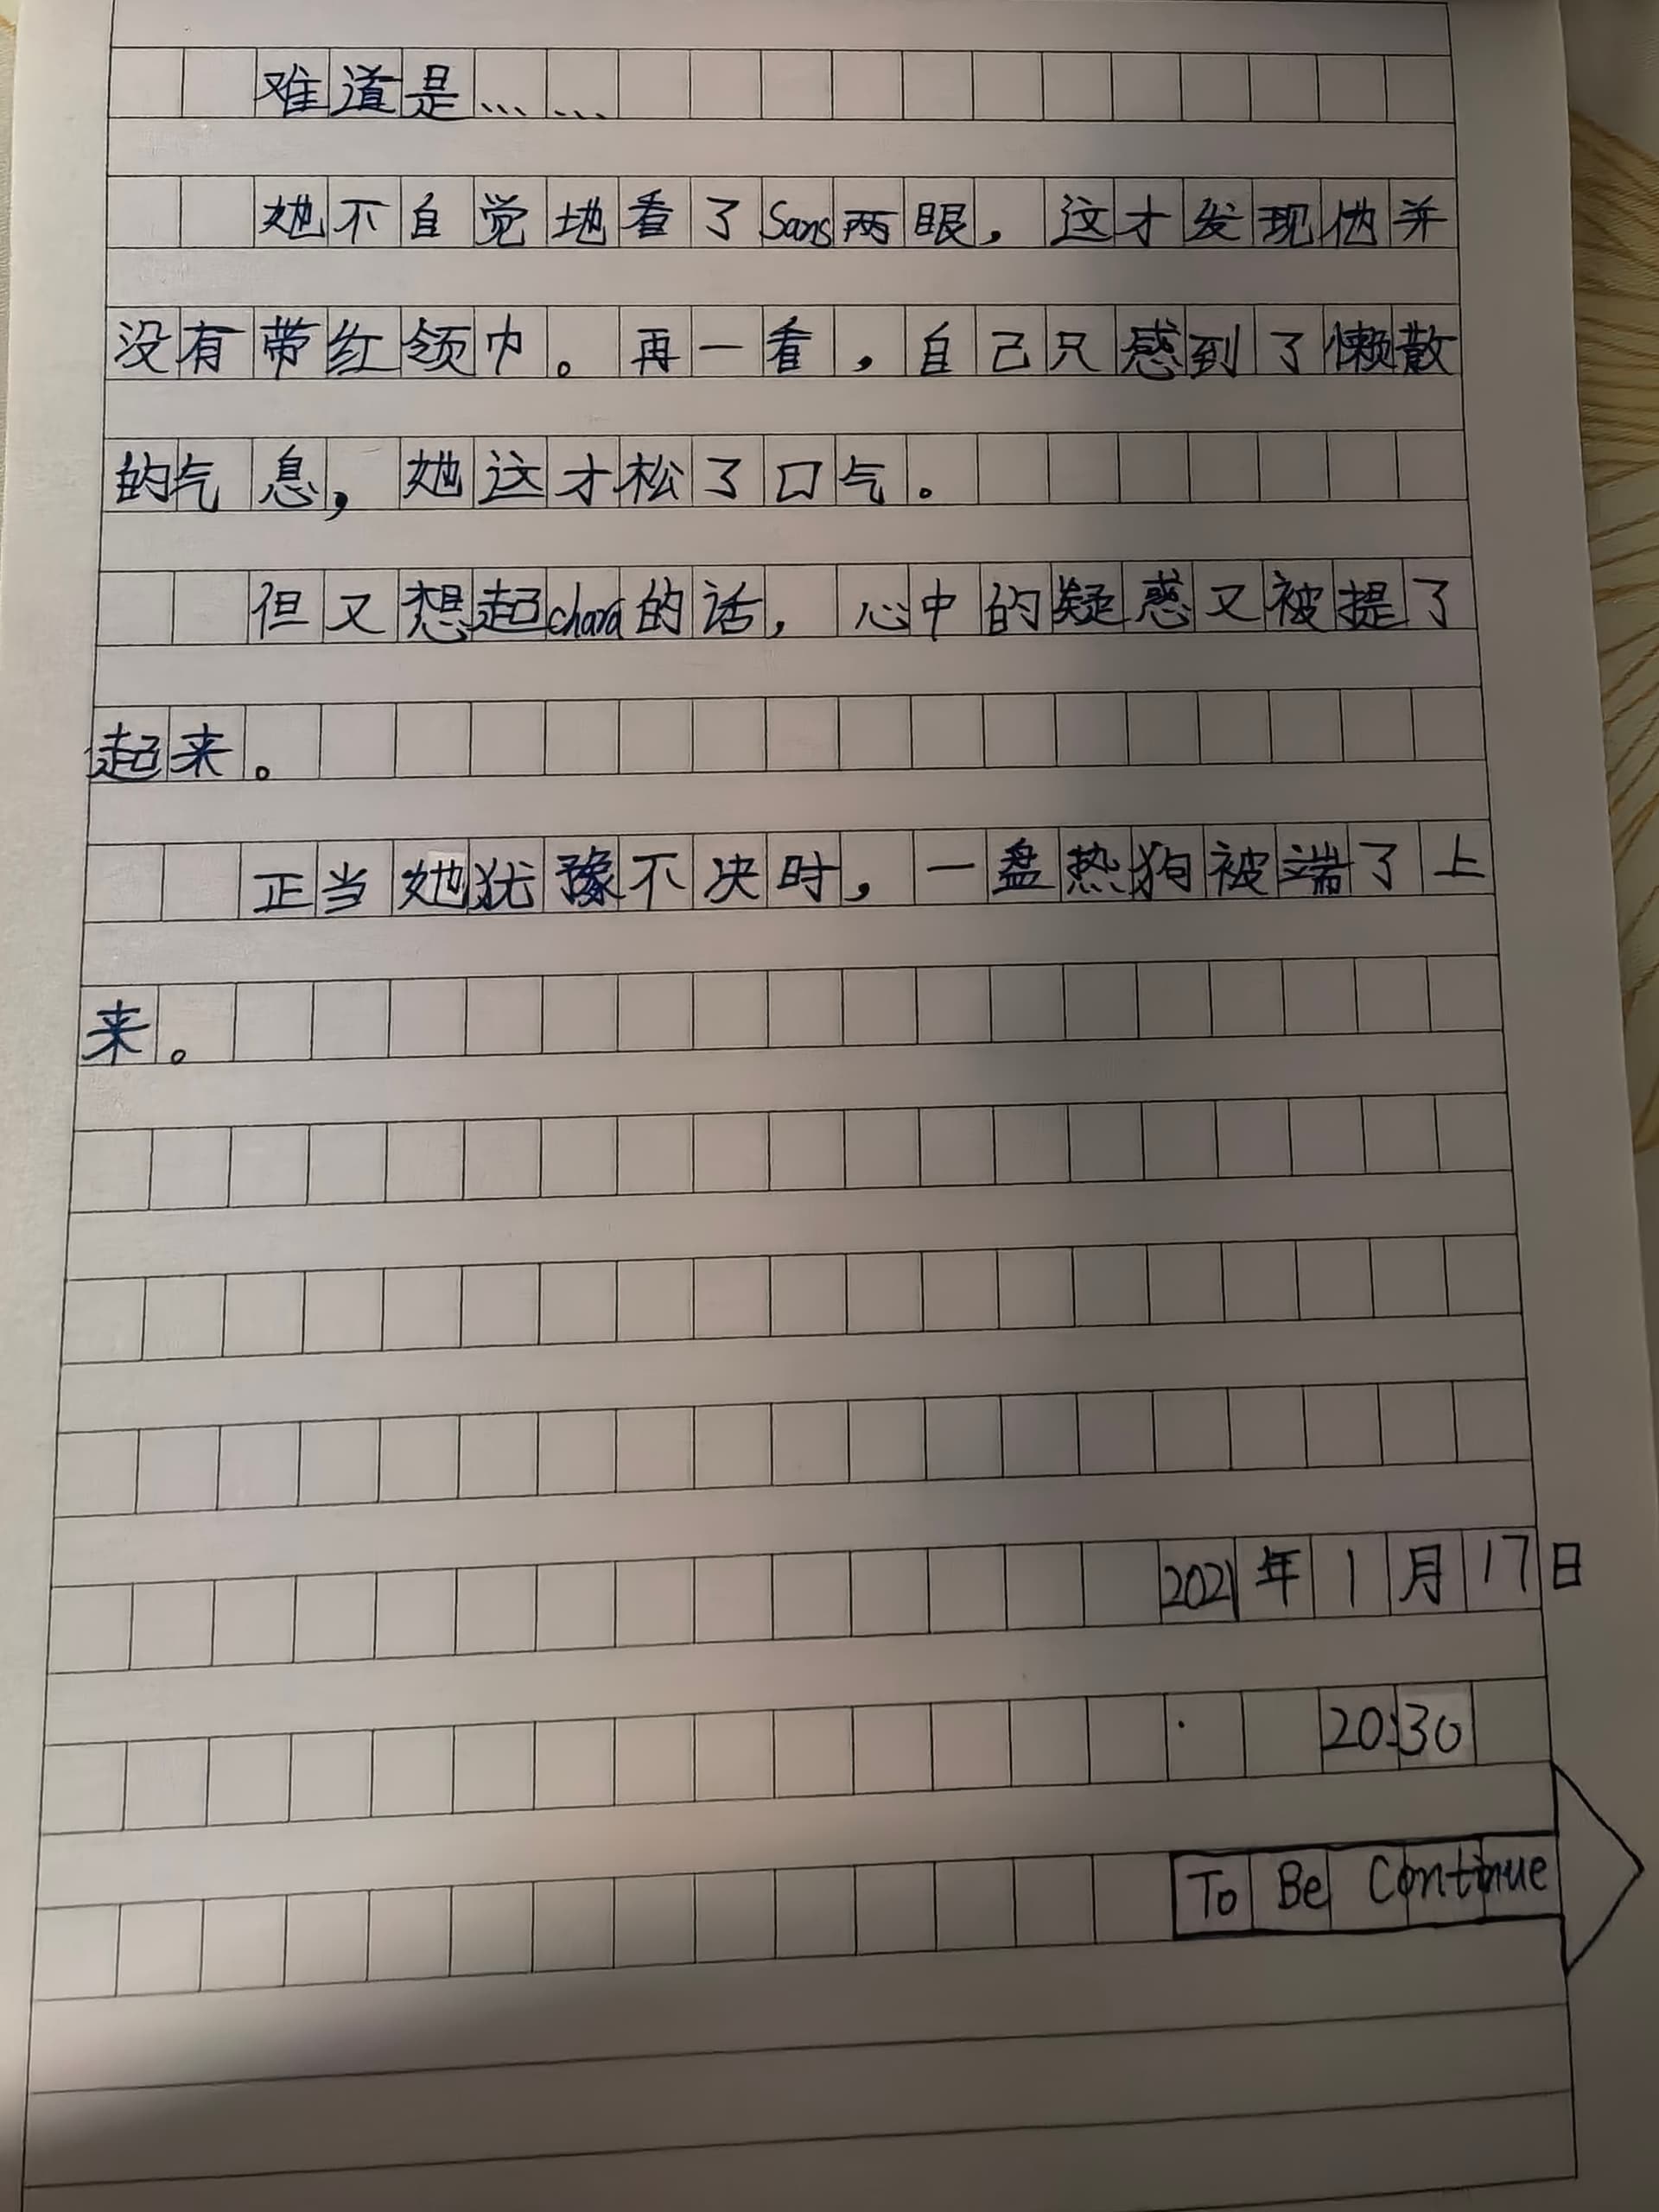 难道是……
她不自觉地看了Sans两眼，这才发现他并
没有带红领巾。再一看，自己只感到了懒散
的气息，她这才松了口气。
但又想起chara的话，心中的疑惑又被提了
起来。
正当她犹豫不决时，一盘热狗被端了上
来。
2021年1月17日
20:30
To Be Continue